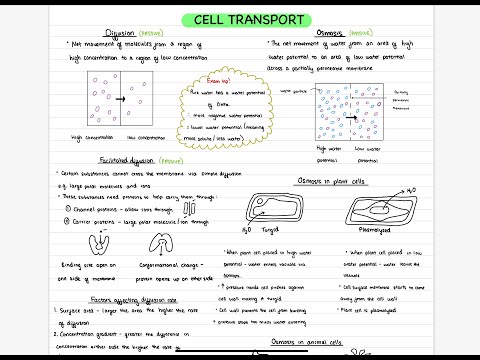 CELL TRANSPORT
Diffusion (PASSIVE)
• Net movement of molecules from a region of
high concentration to a region of low concentration
High concentration
low concentration
Exam tip!
Pure water has a water potential
of 0kPa.
: more negative water potential
: lower water potential (meaning
more solute / less water)
Osmosis (PASSIVE)
• The net movement of water from an area of high
water potential to an area of low water potential
across a partially permeable membrane
water particle
Partially
permeable
membrane
High water
potential
Low water
potential
Facilitated diffusion (PASSIVE)
• Certain substances cannot cross the membrane via simple diffusion
e.g. large polar molecules and ions
• These substances need proteins to help carry them through:
① Channel proteins - allow ions through
② Carrier proteins - large polar molecule/ion through
Binding site open on
one side of membrane
Conformational change -
protein opens up on other side
Factors affecting diffusion rate
1. Surface area - larger the area the higher the rate
of diffusion
2. Concentration gradient - greater the difference in
concentration either side the higher the rate of
Osmosis in plant cells
H₂O
Turgid
H₂O
Plasmolysed
• When plant cell placed in high water
potential - water enters vacuole via
osmosis
• ↑ pressure means cell pushes against
cell wall making it turgid
• Cell wall prevents the cell from bursting
• pressure stops too much water entering
• When plant cell placed in low
water potential - water leaves the
vacuole
• Cell surface membrane starts to come
away from the cell wall
• Plant cell is plasmolysed
Osmosis in animal cells